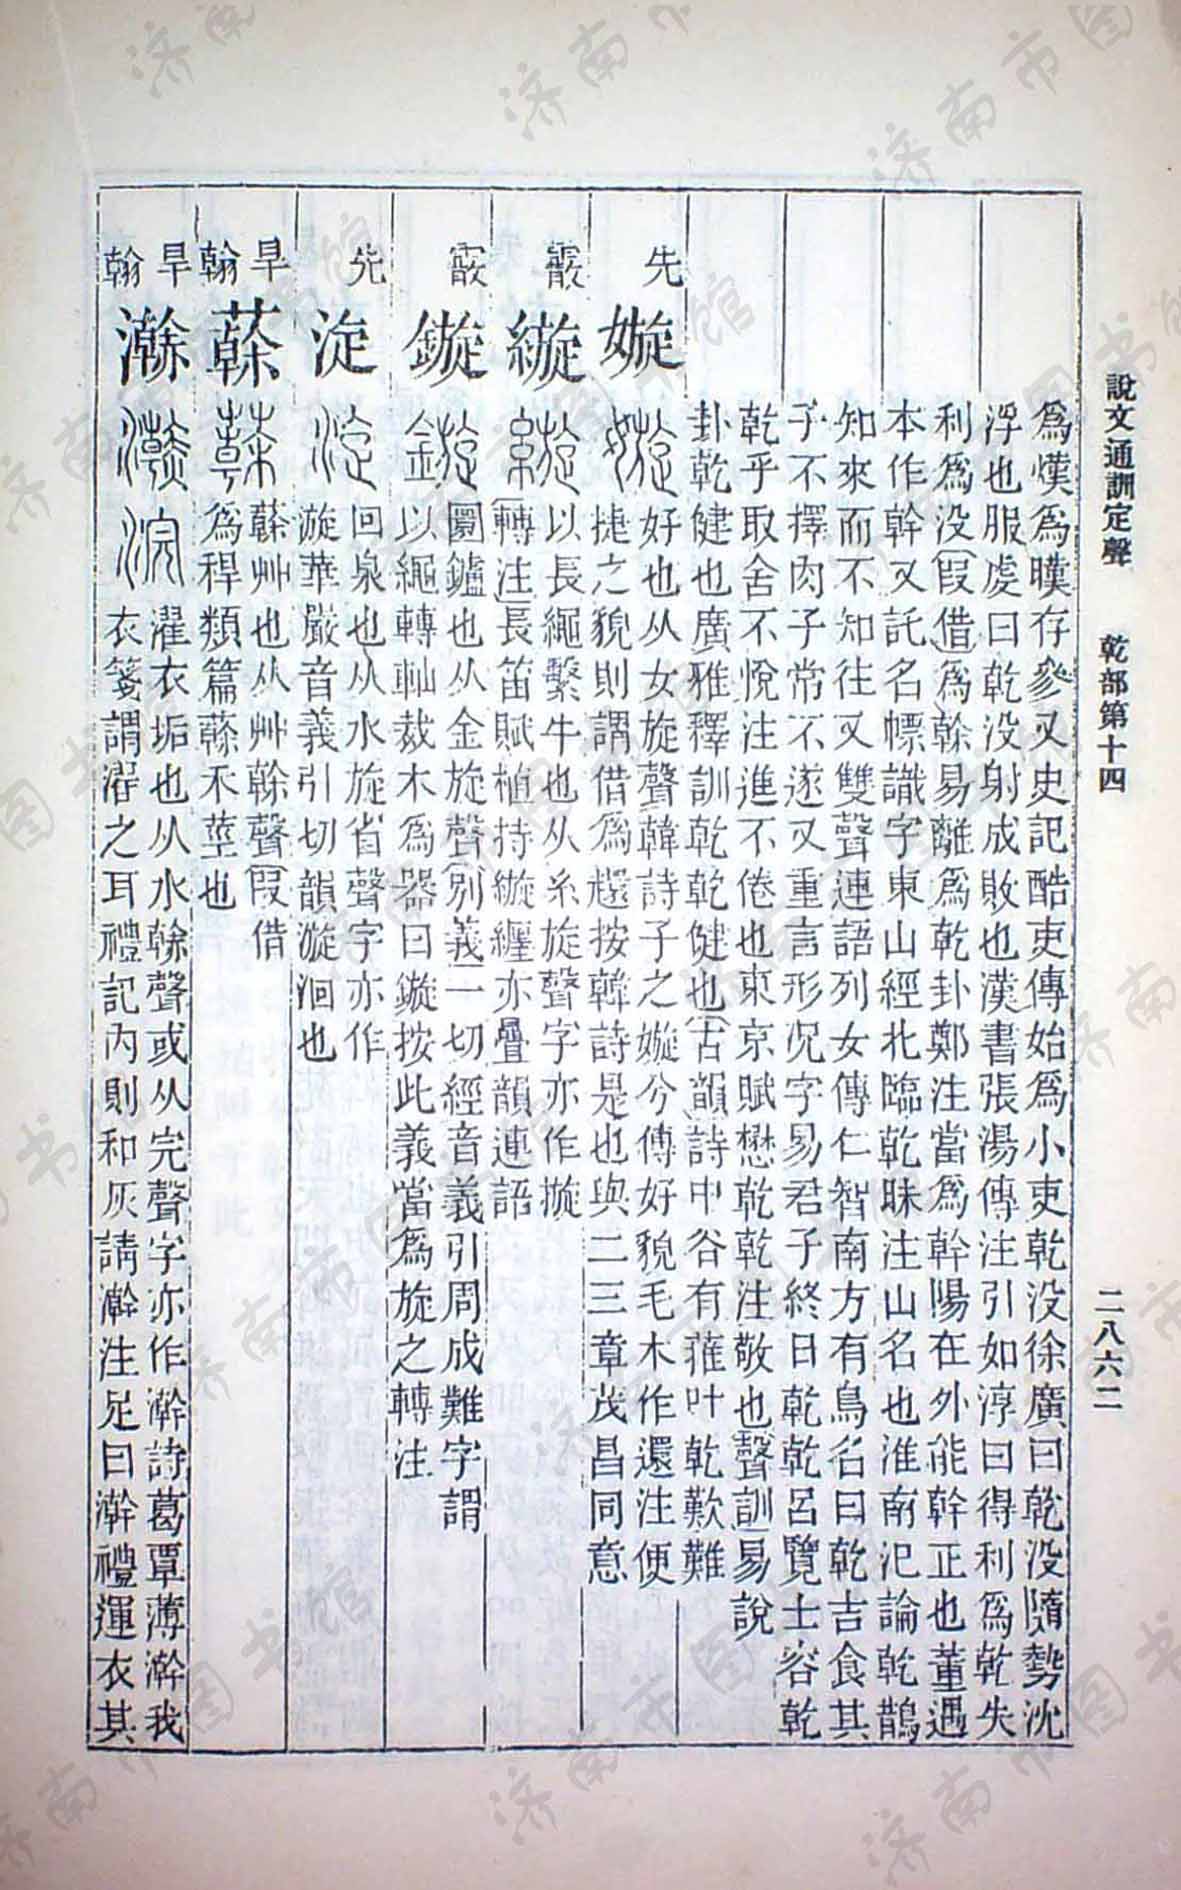 說文通訓定聲　乾部第十四　二八六二
爲熯爲暵存參又史記酷吏傳始爲小吏乾没徐廣曰乾没隨勢沈
浮也服虔曰乾没射成敗也漢書張湯傳注引如淳曰得利爲乾失
利爲没〔叚借〕爲榦易離爲乾卦鄭注當爲幹陽在外能幹正也董遇
本作幹又託名幖識字東山經北臨乾昧注山名也淮南氾論乾鵲
知來而不知往又雙聲連語列女傳仁智南方有鳥名曰乾吉食其
子不擇肉子常不遂又重言形況字易君子終日乾乾呂覽士容乾
乾乎取舍不悅注進不倦也東京賦懋乾乾注敬也〔聲訓〕易說
卦乾健也廣雅釋訓乾乾健也〔古韻〕詩中谷有蓷叶乾歎難
先
嫙
好也从女旋聲韓詩子之嫙兮傳好貌毛木作還注便
捷之貌則謂借爲趧按韓詩是也與二三章茂昌同意
霰
縼
以長繩繫牛也从糸旋聲字亦作㨹
〔轉注〕長笛賦植持縼纏亦疊韻連語
霰
鏇
圜鑪也从金旋聲〔別義〕一切經音義引周成難字謂
以繩轉軸裁木爲器曰鏇按此義當爲旋之轉注
先
淀
回泉也从水旋省聲字亦作
漩華嚴音義引切韻漩洄也
旱翰
䔤
䔤艸也从艸榦聲〔叚借
爲稈類篇䔤禾莖也
旱翰
澣
濯衣垢也从水榦聲或从完聲字亦作澣詩葛覃薄澣我
衣箋謂濯之耳禮記内則和灰請澣注足曰澣禮運衣其